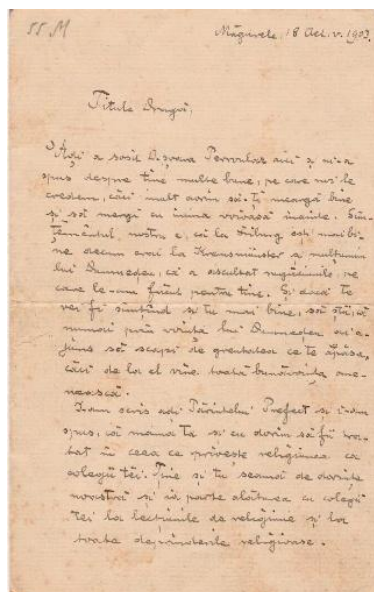 55 M
Măgurele, 18 Oct. v. 1903.
Titule Dragă,
Azi a sosit Dșoara aici și ni-a
spus despre tine multe bune, pe care noi le
credem, căci mult dorim să-ți meargă bine
și să mergi cu inima voioasă înainte. Sim-
țământul nostru e, că la ești mai bi-
ne decum erai la Kremsmünster și mulțumim
lui Dumnezeu, că a ascultat rugăciunile, pe
care le-am făcut pentru tine. Și dacă te
vei fi simțind și tu mai bine, să știi, că
numai prin voința lui Dumnezeu ai a-
juns să scapi de greutatea ce te apăsa,
căci de la el vine toată bunăvoința ome-
nească.
I-am scris azi Părintelui Prefect și i-am
spus, că mama ta și eu dorim să fii tra-
tat în ceea ce privește religiunea ca
colegii tăi. Ține și tu seamă de dorința
noastră și ia parte alăturea cu colegii
tei la lecțiunile de religiune și la
toate deprinderile religioase.